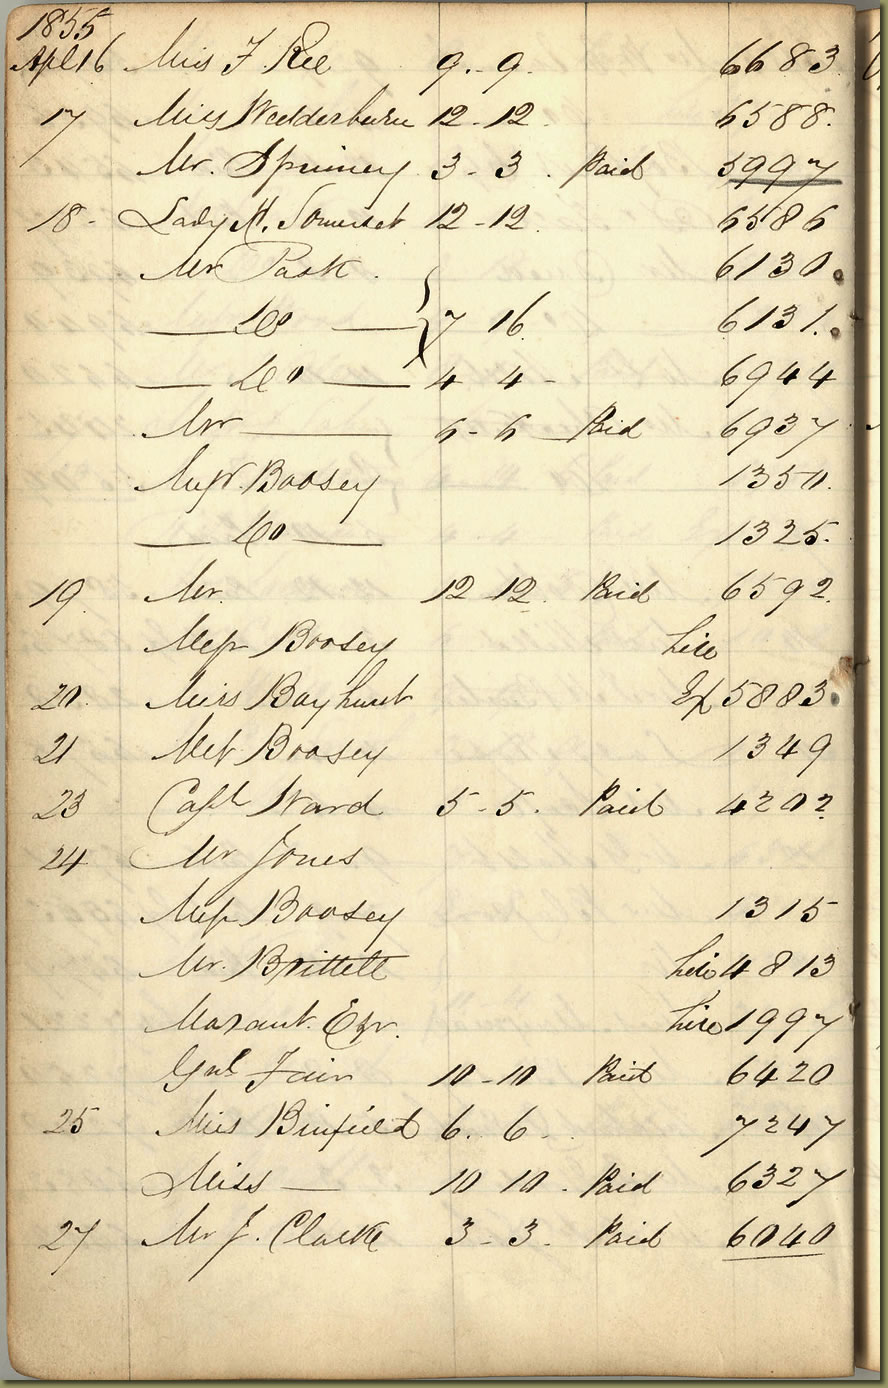 1855
Apl 16 Miss F Ree 9 . - 9 . 6683.
17 Miss Wedderburn 12 - 12 . 6588.
Mr. Spinney 3 - 3 . Paid 5997
18 - Lady M. Somerset 12 - 12 . 6586
Mr Pask . 6130.
— Do — } 7 16 6131.
— Do — 4 4 - 6944
Mr — 6 - 6 Paid 6937
Messr. Boosey 1350.
— Do — 1325.
19 Mr. 12 12 . Paid 6592.
Messr Boosey hire
20. Miss Bayhurst Ex 5883.
21 Mess Boosey 1349
23 Capt Ward 5 - 5 . Paid 4202
24 Mr Jones
Messr Boosey 1315
Mr. Brittell hire 4813
Esqr. hire 1997
Genl Fair 10 - 10 Paid 6420
25 Miss Binfield 6 . 6 . 7247
Miss — 10 10 . Paid 6327
27 Mr J. Clarke 3 - 3 . Paid 6040